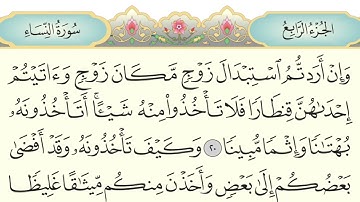 الجزء الرابع
سورة النساء
وَإِنْ أَرَدتُّمُ ٱسْتِبْدَالَ زَوْجٍ مَّكَانَ زَوْجٍ وَءَاتَيْتُمْ
إِحْدَىٰهُنَّ قِنطَارًا فَلَا تَأْخُذُوا۟ مِنْهُ شَيْـًٔا ۚ أَتَأْخُذُونَهُۥ
بُهْتَـٰنًا وَإِثْمًا مُّبِينًا ٢٠ وَكَيْفَ تَأْخُذُونَهُۥ وَقَدْ أَفْضَىٰ
بَعْضُكُمْ إِلَىٰ بَعْضٍ وَأَخَذْنَ مِنكُم مِّيثَـٰقًا غَلِيظًا